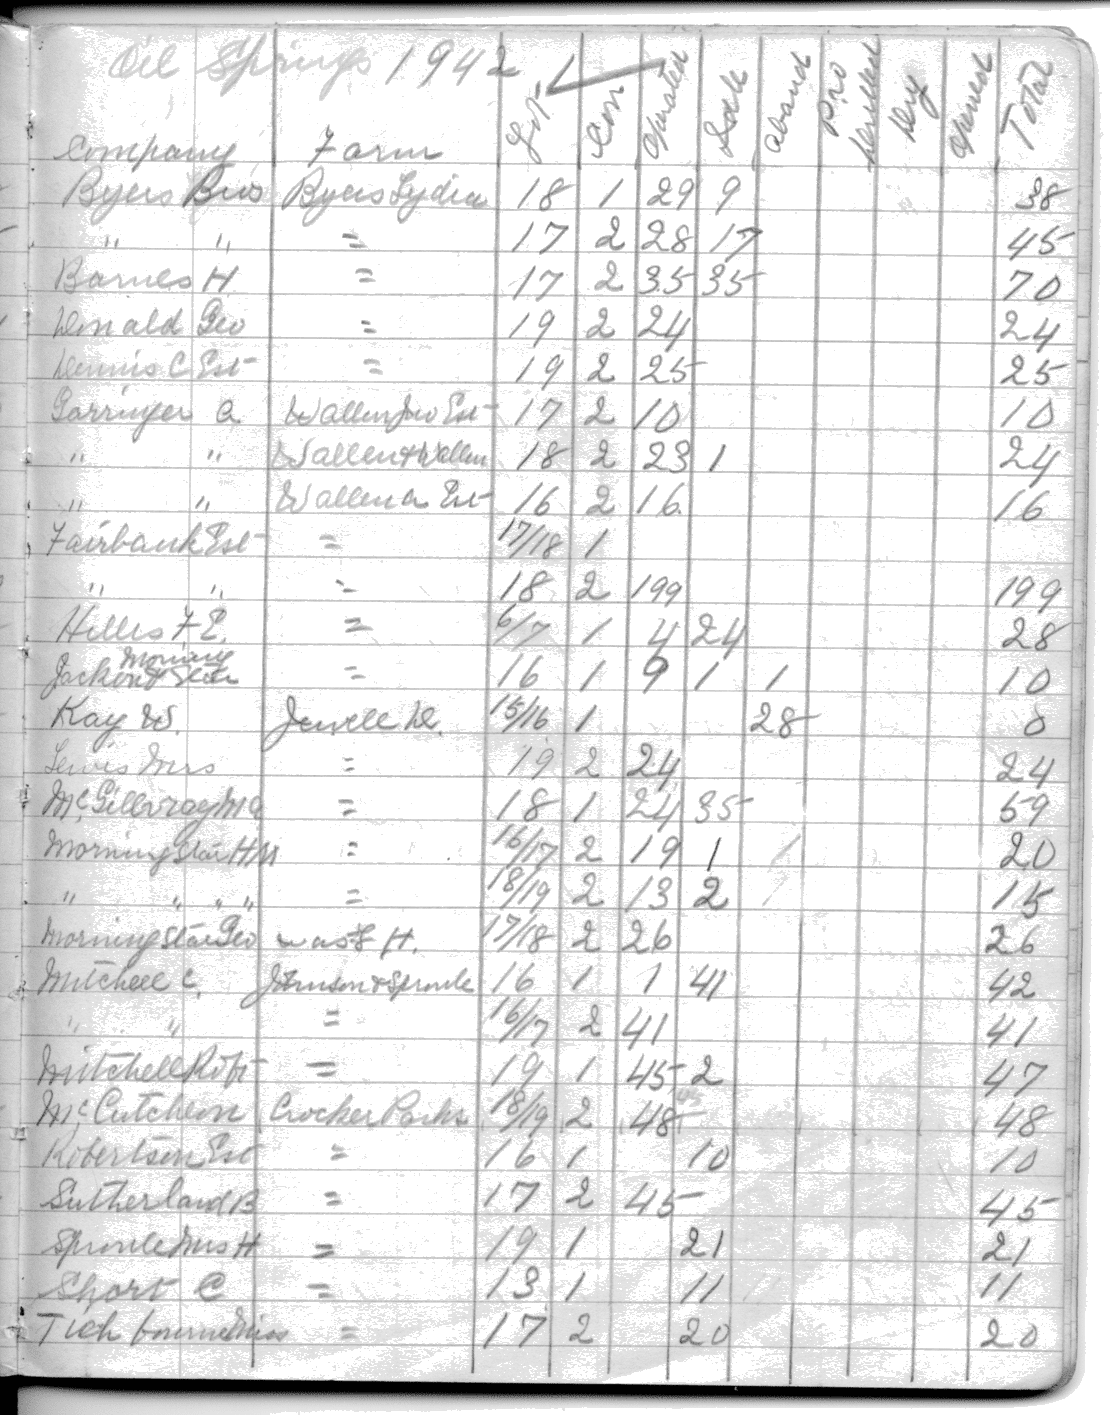 Oil Springs 1942
Company Farm Lot Con Operated Idle aband Pro Drilled Dry opened Total
Byers Bros Byers Lydia 18 1 29 9 38
" " = 17 2 28 17 45
Barnes H = 17 2 35 35 70
Donald Geo = 19 2 24 24
Dennis C Est = 19 2 25 25
Garringer a Wallen Jno Est 17 2 10 10
" " Wallen & Wallen 18 2 23 1 24
" " Wallen a Est 16 2 16 16
Fairbank Est = 17/18 1
" " = 18 2 199 199
Hillis F E. = 6/7 1 4 24 28
Jackson & Morning Star = 16 1 9 1 1 10
Kay W. Jewell D. 15/16 1 28 0
Lewis Mrs = 19 2 24 24
Mc Gillvray = 18 1 24 35 59
Morning Star H M = 16/17 2 19 1 1 20
" " " " = 18/19 2 13 2 15
Morning Star Geo H. 17/18 2 26 26
Mitchell C. Johnson & Sproule 16 1 1 41 42
" " = 16/17 2 41 41
Mitchell Robt = 19 1 45 2 47
Mc Cutcheon Crocker Parks 18/19 2 48 48
Robertson Est = 16 1 10 10
Sutherland B = 17 2 45 45
Sproule Mrs H = 19 1 21 21
Short C = 13 1 11 11
Tichbourne Miss = 17 2 20 20